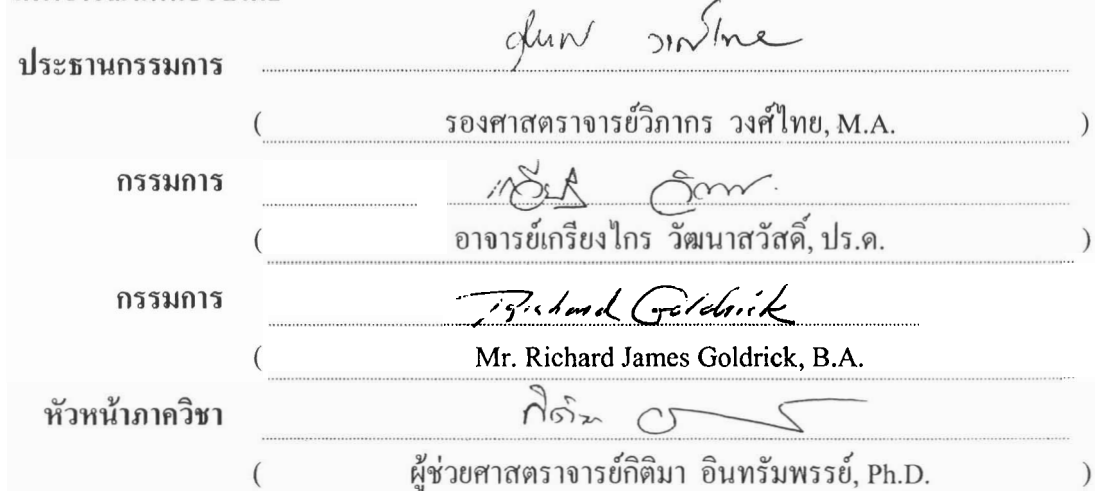 ประธานกรรมการ
( รองศาสตราจารย์วิภากร วงศ์ไทย, M.A. )
กรรมการ
( อาจารย์เกรียงไกร วัฒนาสวัสดิ์, ปร.ด. )
กรรมการ Richard Goldrick
( Mr. Richard James Goldrick, B.A. )
หัวหน้าภาควิชา
( ผู้ช่วยศาสตราจารย์กิติมา อินทรัมพรรย์, Ph.D. )